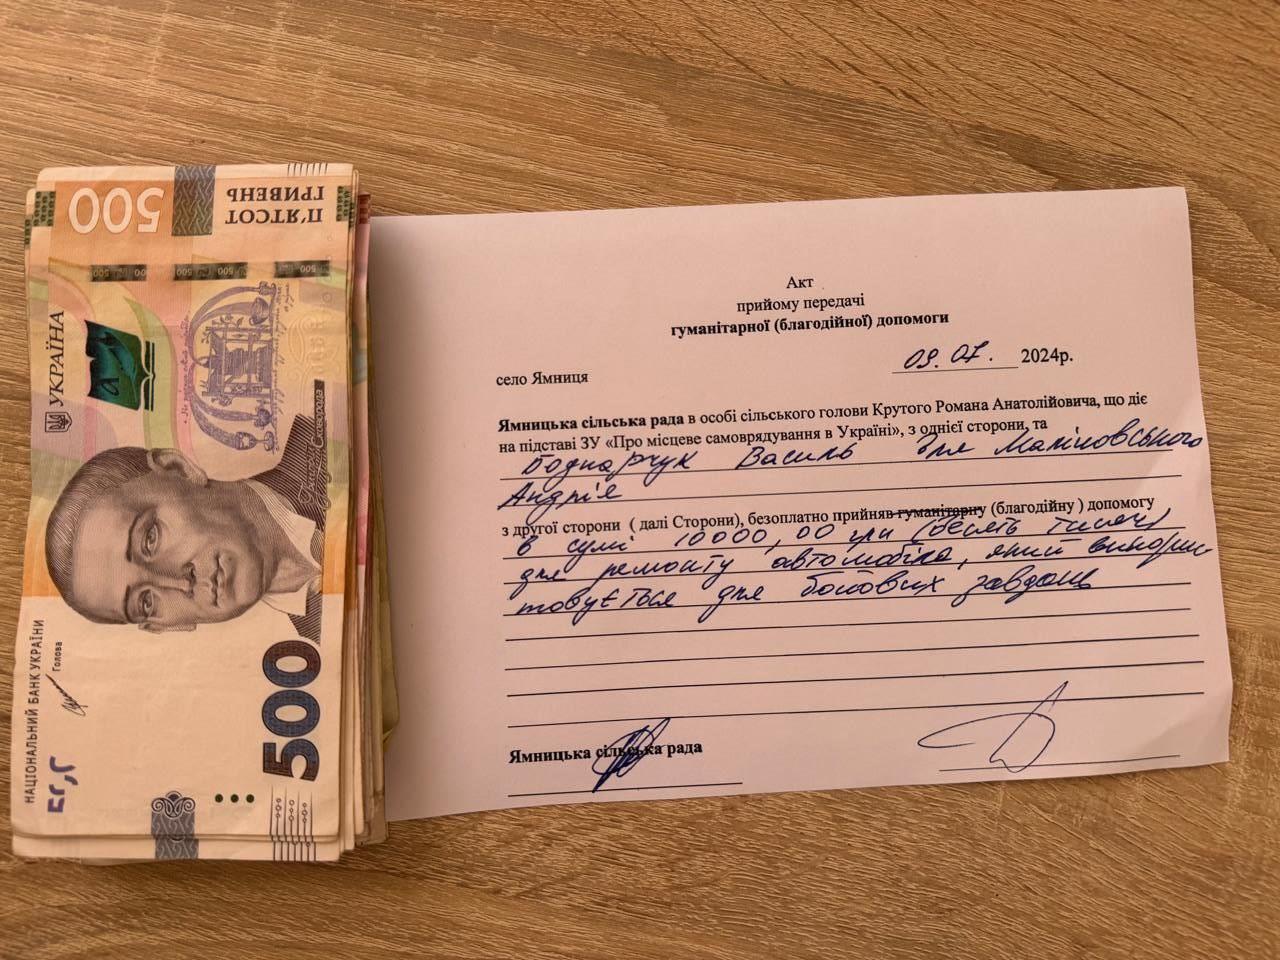 500
П'ЯТСОТ
ГРИВЕНЬ
500 500 500
УКРАЇНА
НАЦІОНАЛЬНИЙ БАНК УКРАЇНИ
Голова
500
Акт
прийому передачі
гуманітарної (благодійної) допомоги
09.07. 2024р.
село Ямниця
Ямницька сільська рада в особі сільського голови Крутого Романа Анатолійовича, що діє
на підставі ЗУ «Про місцеве самоврядування в Україні», з однієї сторони, та
Боднарчук Василь для Маліновського
Андрія
з другої сторони ( далі Сторони), безоплатно прийняв гуманітарну (благодійну ) допомогу
в сумі 10000,00 грн (десять тисяч)
для ремонту автомобіля, який викорис
товується для бойових завдань
Ямницька сільська рада